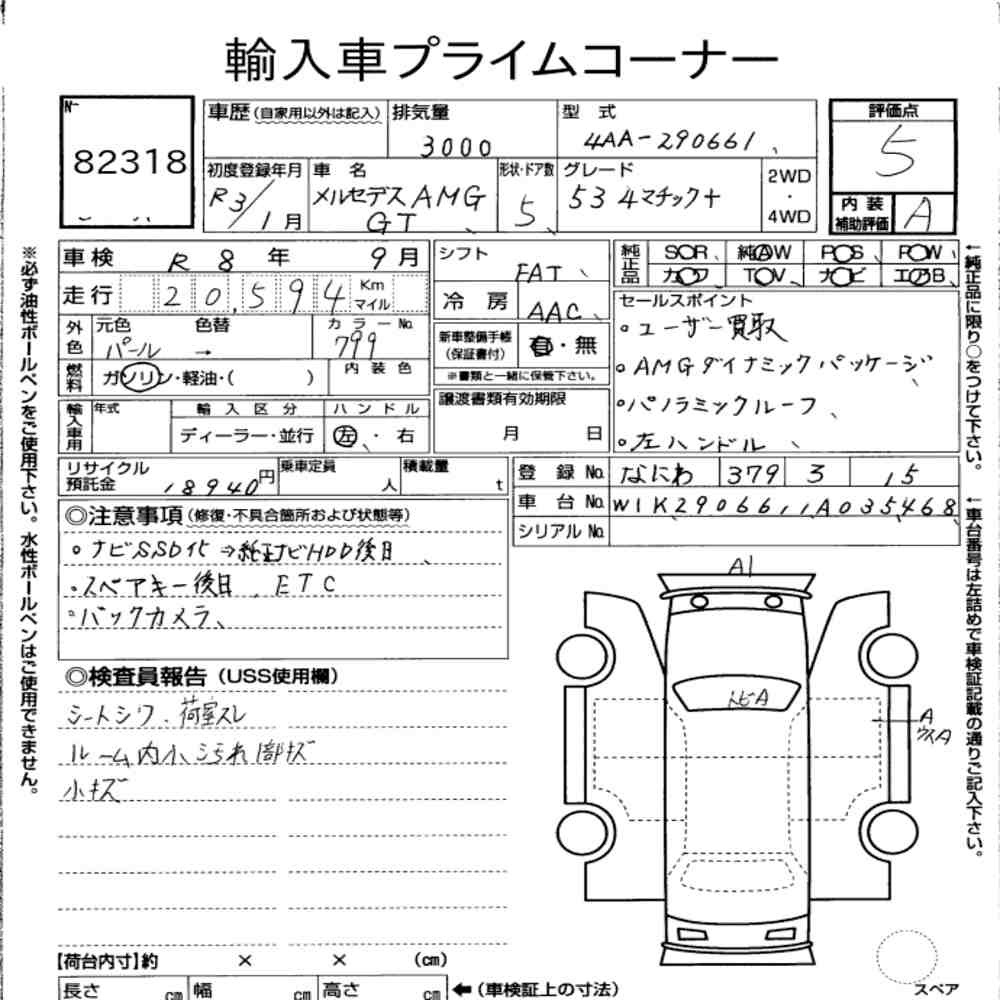 輸入車プライムコーナー
N-
82318
車歴(自家用以外は記入)
排気量
3000
型式
4AA-290661
評価点
5
初度登録年月
R3/1月
車名
メルセデスAMG
GT
形状・ドア数
5
グレード
53 4マチック+
2WD
・
4WD
内装
補助評価
A
車検 R 8年 9月
シフト
FAT
純正品
SOR 純AW POS POW
カワ TOV ナビ エアB
走行 20,594 Km
マイル
冷房
AAC
セールスポイント
。ユーザー買取
。AMGダイナミックパッケージ
。パノラミックルーフ
。左ハンドル
外色
元色
パール
→
色替
カラーNo.
799
新車整備手帳
(保証書付)
有・無
※書類と一緒に保管下さい。
燃料
ガソリン・軽油・( )
内装色
輸入車用
年式
輸入区分
ディーラー・並行
ハンドル
左・右
譲渡書類有効期限
月 日
リサイクル
預託金
18940円
乗車定員
人
積載量
t
登録No. なにわ 379 3 15
車台No. W1K2906611A035468
シリアルNo.
◎注意事項(修復・不具合箇所および状態等)
。ナビSSD化⇒純正ナビHDD後日
・スペアキー後日、ETC
。バックカメラ、
◎検査員報告(USS使用欄)
シートシワ、荷室スレ
ルーム内小汚れ1部キズ
小キズ
A1
トビA
A
ウスA
【荷台内寸】約 × × (cm)
長さ cm 幅 cm 高さ cm
←(車検証上の寸法)
スペア
※必ず油性ボールペンをご使用下さい。水性ボールペンはご使用できません。
←純正品に限り○をつけて下さい。
←車台番号は左詰めで車検証記載の通りご記入下さい。